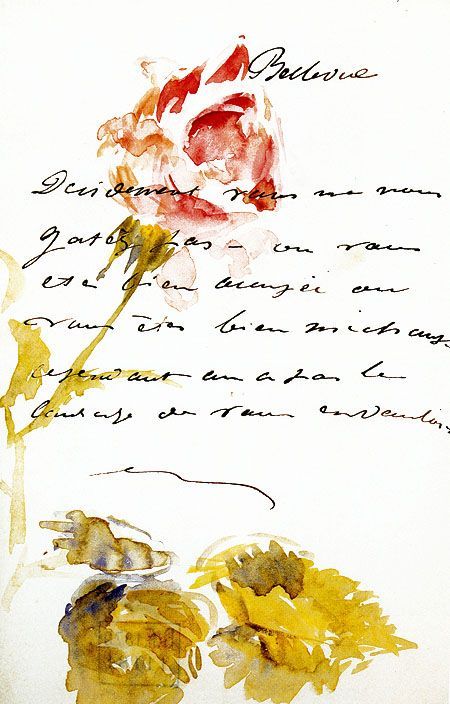 Bellevue
Decidement vous ne nous
gatez pas – ou vous
etes bien occupée ou
vous êtes bien mechante
cependant on a pas le
courage de vous en vouloir